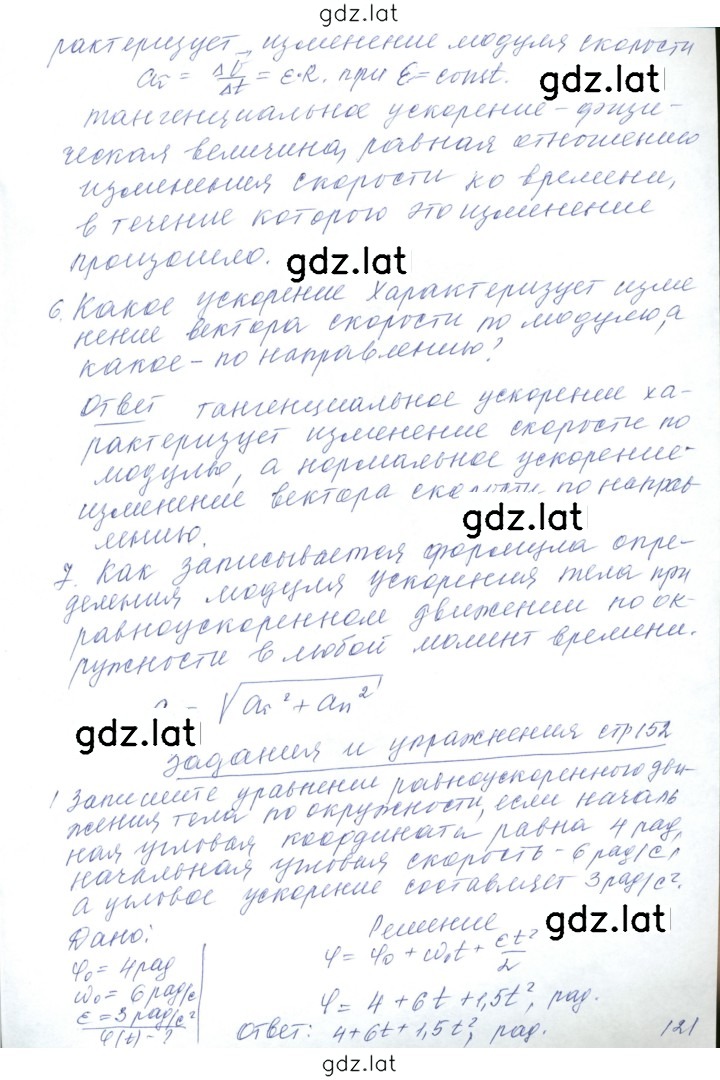 gdz.lat
рактеризует изменение модуля скорости
aτ = Δυ/Δt = ε·R. при ε = const.
тангенциальное ускорение – физи-
ческая величина, равная отношению
изменения скорости ко времени,
в течение которого это изменение
произошло.
gdz.lat
6. Какое ускорение характеризует изме
нение вектора скорости по модулю, а
какое – по направлению?
Ответ тангенциальное ускорение ха-
рактеризует изменение скорости по
модулю, а нормальное ускорение-
изменение вектора скорости по направ-
лению.
gdz.lat
7. Как записывается формула опре-
деления модуля ускорения тела при
равноускоренном движении по ок-
ружности в любой момент времени.
= √(aτ² + an²)
gdz.lat
Задания и упражнения стр 152
1 Запишите уравнении равноускоренного дви-
жения тела по окружности, если началь
ная угловая координата равна 4 рад,
начальная угловая скорость – 6 рад/с,
а угловое ускорение составляет 3 рад/с².
gdz.lat
Дано:
φ₀ = 4 рад
ω₀ = 6 рад/с
ε = 3 рад/с²
φ(t) – ?
Решение
φ = φ₀ + ω₀t + εt²/2
φ = 4 + 6t + 1,5t², рад.
Ответ: 4 + 6t + 1,5t², рад.
121
gdz.lat